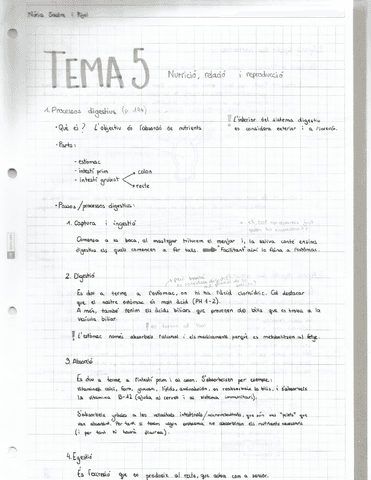 Núria Sastre i Pijol
TEMA 5 Nutrició, relació i reproducció
1. Processos digestius (p. 124)
• Què és? L'objectiu és l'absorció de nutrients
!! L'interior del sistema digestiu es considera exterior i a l'inrevés.
• Parts:
- estómac
- intestí prim
- intestí gruixut
colon
recte
• Passos/processos digestius:
1. Captura i ingestió
Comença a la boca, al mastegar triturem el menjar i, la saliva conté enzims
digestius els quals comencen a fer Facilitant així la feina a l'estómac.
2. Digestió
Es duu a terme a l'estómac, on hi ha l'àcid clorhídric. Cal destacar
que el nostre estómac és molt àcid (PH 1-2).
A més, també tenim els àcids biliars, que provenen del bilis que es troba a la
vesícula biliar.
!! L'estómac només absorbeix l'alcohol i els medicaments perquè es metabolitzen al fetge.
3. Absorció
Es duu a terme a l'intestí prim i al colon. S'absorbeixen per exemple:
vitamines, calci, ferro, glucosa, lípids, es reabsorbeix la bilis, i s'absorbeix
la vitamina B-12 (ajuda al cervell i al sistema immunitari).
S'absorbeix gràcies a les vellositats intestinals/microvellositats, que són uns "pèls" que
ens absorbeixen els nutrients
(i per tant hi haurà diarrea).
4. Egestió
És l'excreció que es produeix al recte, que acaba com a